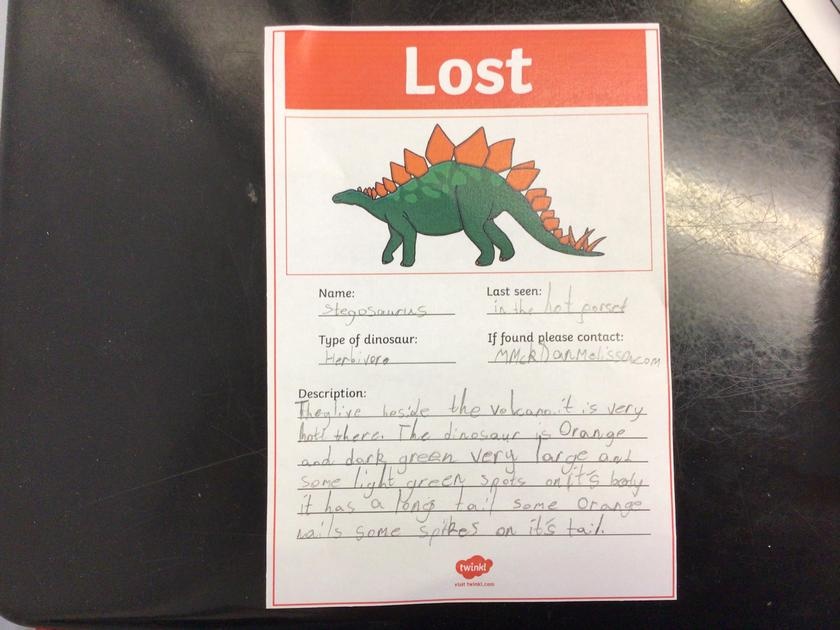 Lost
Name:
Stegosaurus
Last seen:
in the hot forest
Type of dinosaur:
Herbivore
If found please contact:
MMckDanMelissa.com
Description:
They live beside the volcano. it is very
hott there. The dinosaur is Orange
and dark green very large and
some light green spots on it's body
it has a long tail some Orange
nails some spikes on it's tail.
twinkl
visit twinkl.com